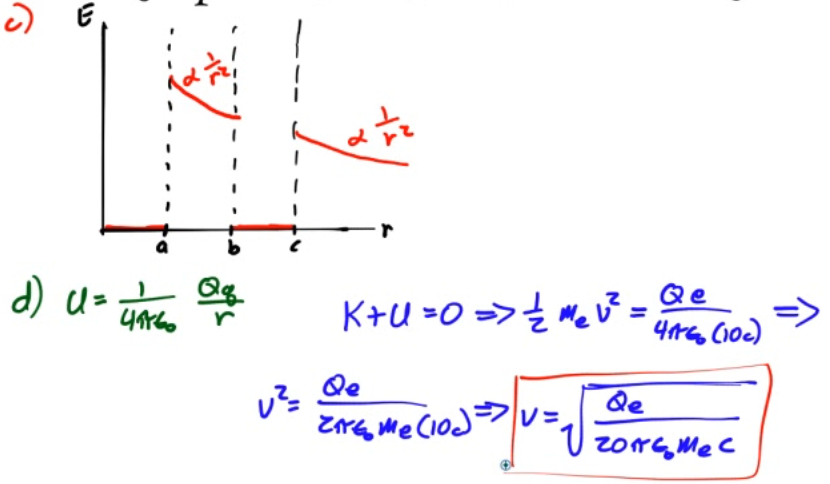 c) E
α 1/r²
α 1/r²
a b c r
d) U = 1/4πϵ₀ Qq/r
K+U=0 => 1/2 mₑ v² = Qe/4πϵ₀(10c) =>
v² = Qe/2πϵ₀mₑ(10c) => v = √(Qe/20πϵ₀mₑc)